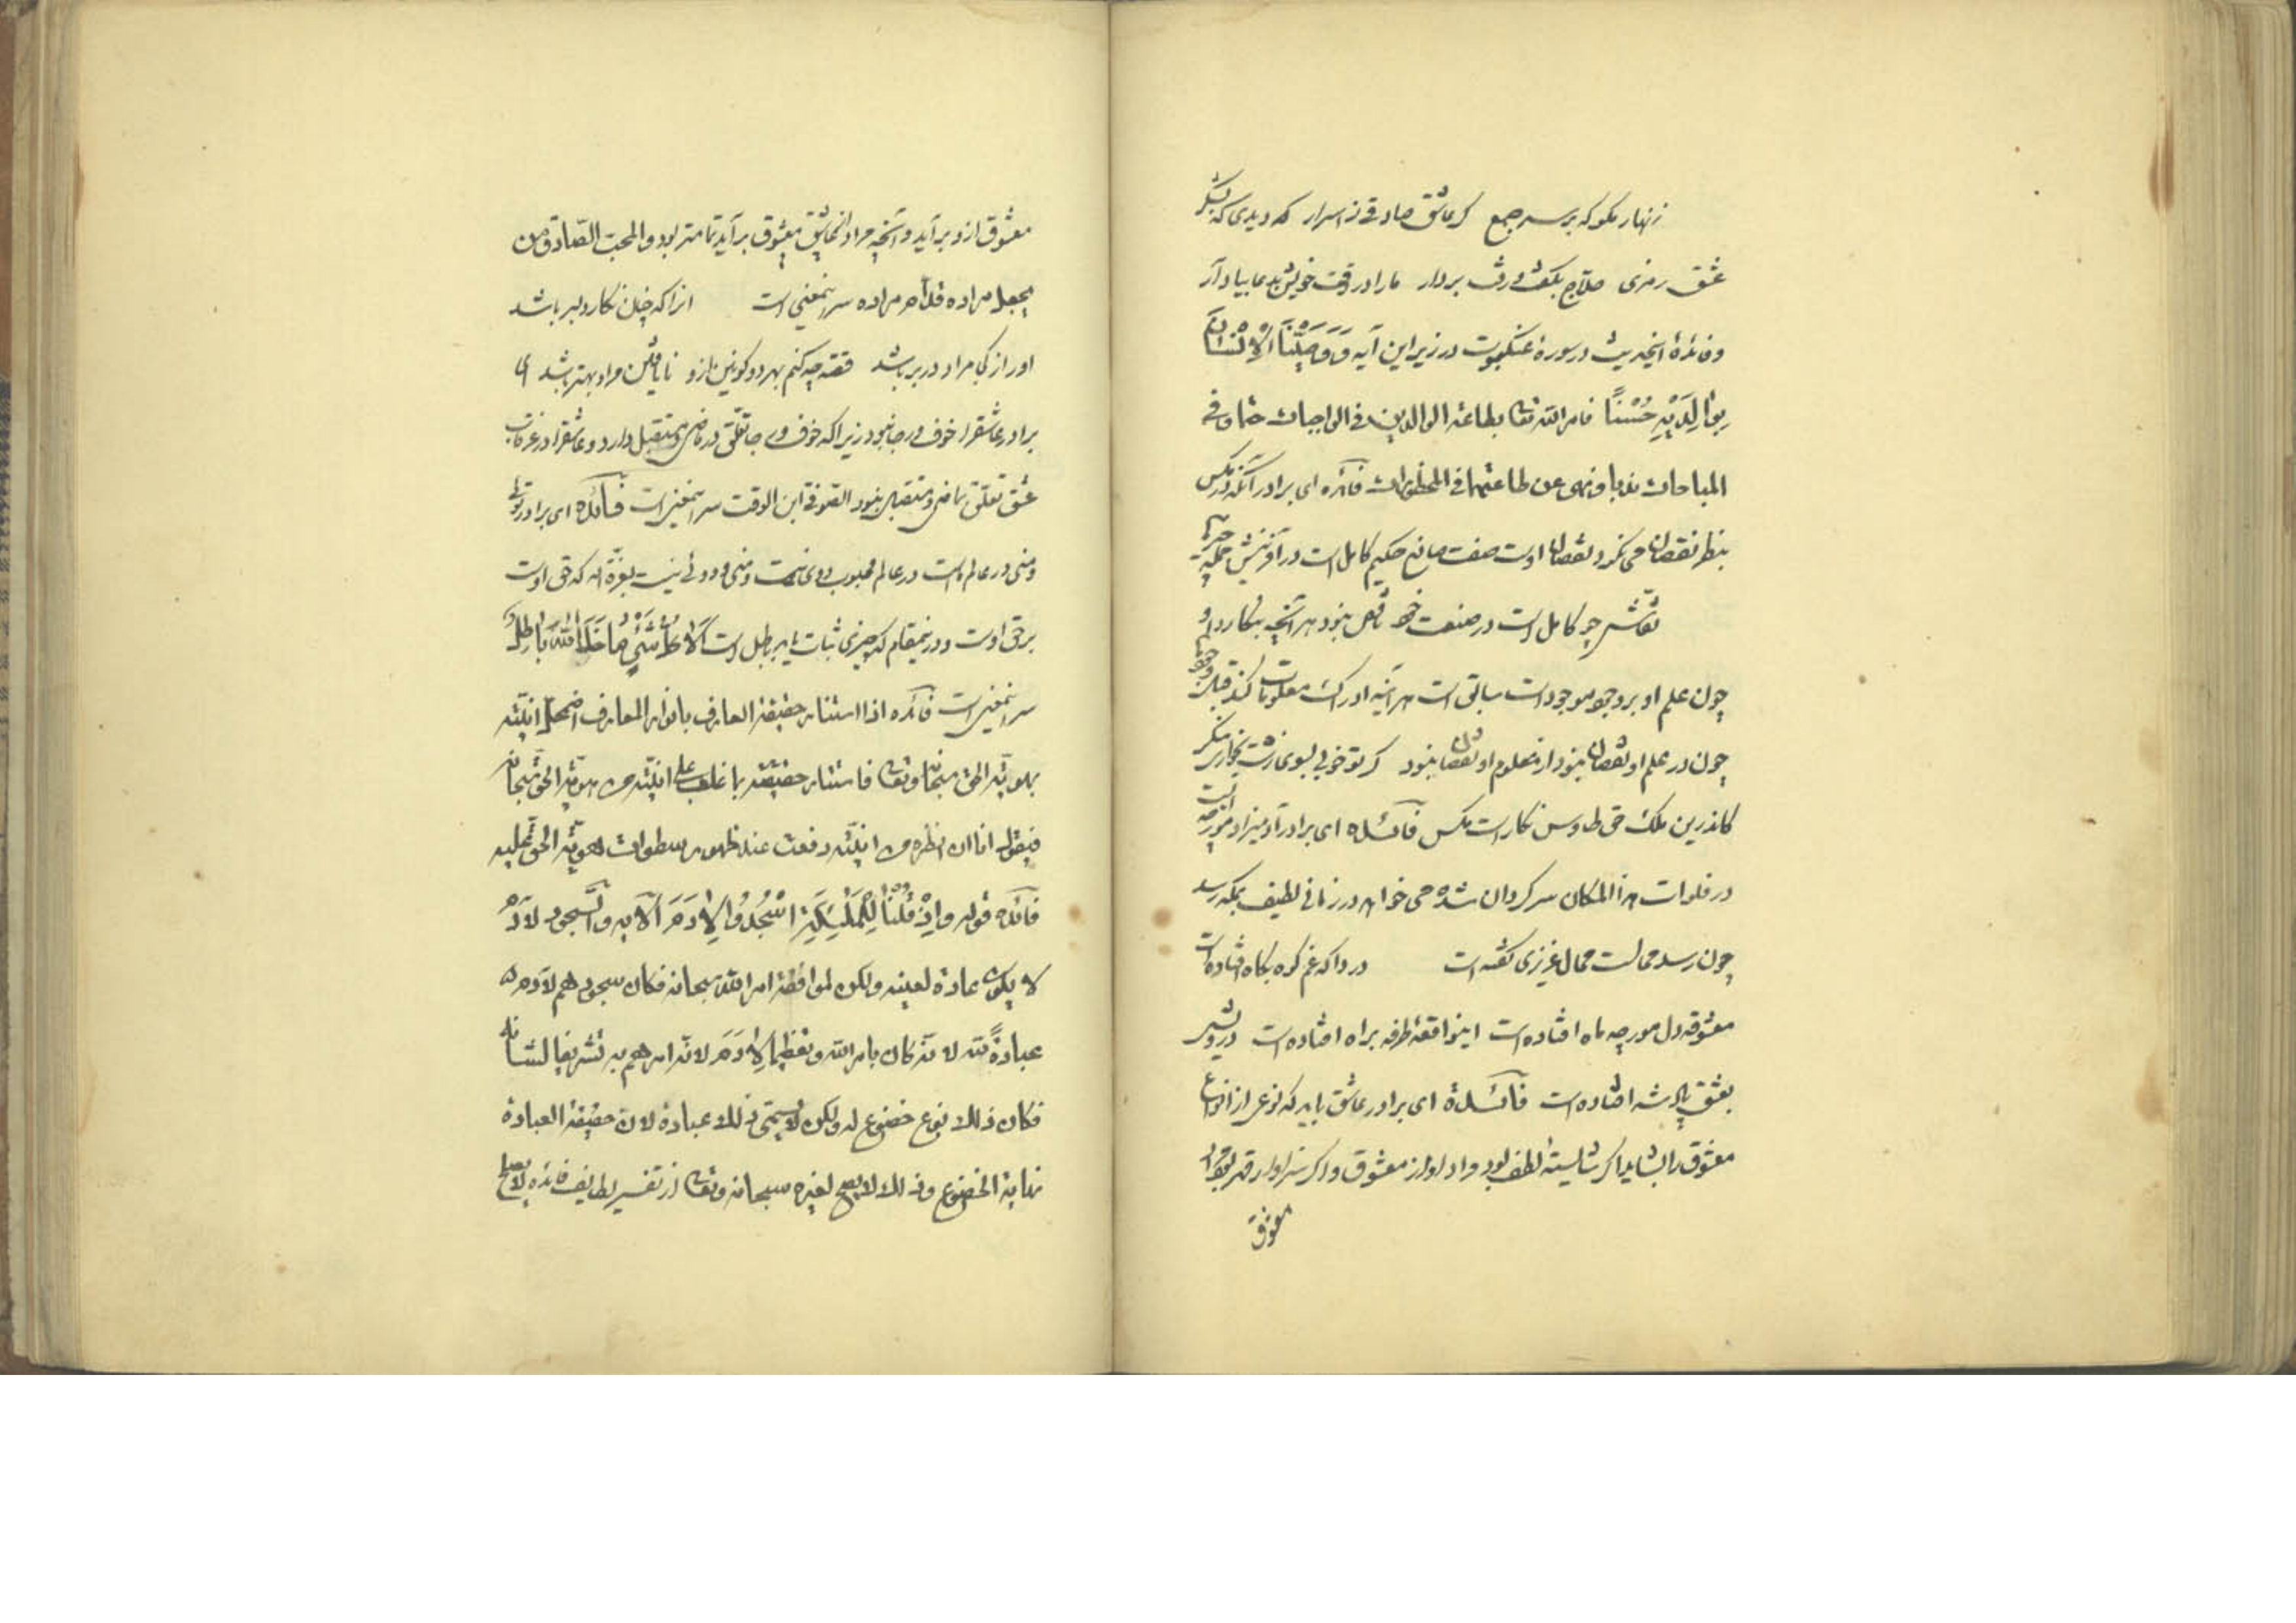 زنهار مکو که بر سر جمع کر عاشق صادقی ز اسرار که دیدی که بشکر
عشق رمزی حلاج بکفت ورفت بر دار ما را در وقت خویش بدعا بیاد آر
وفائدهٔ اینحدیث در سورهٔ عنکبوت در زیر این آیه وَوَصَّیْنَا الْاِنْسَانَ
بِوَالِدَیْهِ حُسْنًا فامر الله تعا بطاعة الوالدین فی الواجبات حتما وفی
المباحات ندبا ونهی عن طاعتهما فی المحظورات فائده ای برادر آنکه در مکس
بنظر نقصان می نکرد نقصان اوست صفت صانع حکیم کامل است در آفرینش جمله چیزها
نقاش چو کامل است در صنعت خود ناقص نبود هر آنچه بنکارد او
چون علم او بر وجود موجودات سابق است هر آینه ادراک معلومات کند قبل وجودها
چون در علم او نقصان نبود از معلوم او نقصان نبود کر تو خوبی بسوی زشت بخواری منکر
کاندرین ملک حق طاوس نکارست مکس فائده ای برادر آدمیزاد مورچه است
در فلوات هذا المکان سرکردان شده می خواهد در زمانی لطیف بمکه رسد
چون رسد محالست محال عزیزی کفته است دردا که غم کوه بکاه افتاده است
معشوقه دل مورچه ماه افتاده است اینواقعه طرفه براه افتاده است درویش
بعشق پادشه افتاده است فائدة ای برادر عاشق باید که نوعی از انواع
معشوق را بشاید اکر شایستهٔ لطف بود مراد او از معشوق و اکر سزاوار قهر بود مراد
معشوق
معشوق ازو برآید وآنچه مراد از عاشق معشوق برآید تمامتر بود والمحب الصّادق من
یجعل مراده فداء مراده سر اینمعنی است آنرا که چنان نکار دلبر باشد
او را ز کجا مراد در بر باشد قصه چه کنم بهر دو کونین ازو نا یافتن مراد بهتر باشد ای
برادر عاشقرا خوف ورجا نبود زیرا که خوف ورجا تعلّق در ماضی ومستقبل دارد وعاشقرا در غرقاب
عشق تعلق بماضی ومستقبل نبود الصوفی ابن الوقت سر اینمعنی است فائده ای برادر توئی
ومنی در عالم ماست در عالم محبوب دوی نیست ومنی ودوئی نیست بعزّة اله که حق اوست
برحق اوست ودرینمقام که چیزی ثبات یابد باطل است اَلَا کُلُّ شَیْءٍ مَا خَلَا اللهَ بَاطِلٌ
سر اینمعنی است فائده اذا استنار حقیقة العارف بانوار المعارف اضمحل انیّته
بهویة الحق سبحانه وتعا فاستنار حقیقته باغلب علی انیّته من هویّة الحق سبحانه
فیقول انا ان نظره من انیّته رفعت عند ظهور سطوات هویّة الحق علیه
فائده قوله وَاِذْ قُلْنَا لِلْمَلٰئِکَةِ اسْجُدُوا لِاٰدَمَ الآیه والسجود لآدم
لا یکون عادة لعینه ولکن لموافقة امر الله سبحانه فکان سجودهم لآدم
عبادةً لله لانّه کان بامر الله وتعظیما لِاٰدَمَ لانّه امرهم به تشریفا لشانه
فکان ذلک نوع خضوع له ولکن لا یسمّی ذلک عبادة لان حقیقة العبادة
نهایة الخضوع وذلک لا یصح لغیره سبحانه وتعا از تفسیر لطایف فائده لا یصلح